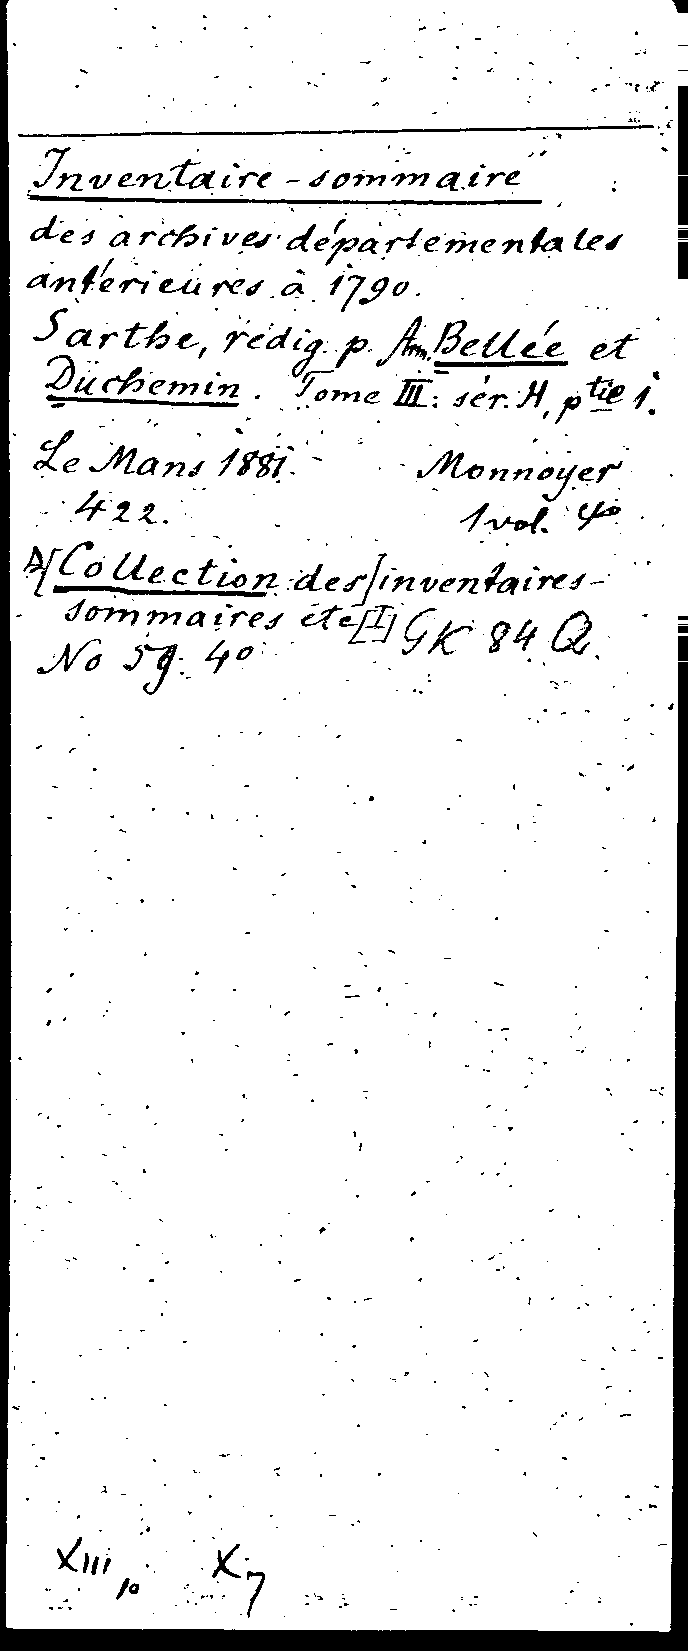 Inventaire-sommaire
des archives départementales
antérieures à 1790.
Sarthe, rédig. p. Am. Bellée et
Duchemin. Tome III: sér. H, ptie 1.
Le Mans 1881. Monnoyer
422. 1 vol. 4o
[Collection des] inventaires-
sommaires etc [I] GK 84 Q.
No 59. 4o
XIII, 10 X, 7